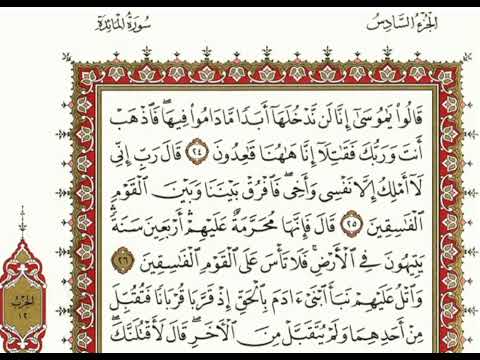 الجزء السادس
سورة المائدة
قَالُوا۟ يَٰمُوسَىٰٓ إِنَّا لَن نَّدْخُلَهَآ أَبَدًا مَّا دَامُوا۟ فِيهَا ۖ فَٱذْهَبْ
أَنتَ وَرَبُّكَ فَقَٰتِلَآ إِنَّا هَٰهُنَا قَٰعِدُونَ ٢٤ قَالَ رَبِّ إِنِّي
لَآ أَمْلِكُ إِلَّا نَفْسِى وَأَخِى ۖ فَٱفْرُقْ بَيْنَنَا وَبَيْنَ ٱلْقَوْمِ
ٱلْفَٰسِقِينَ ٢٥ قَالَ فَإِنَّهَا مُحَرَّمَةٌ عَلَيْهِمْ ۛ أَرْبَعِينَ سَنَةً ۛ
يَتِيهُونَ فِى ٱلْأَرْضِ ۚ فَلَا تَأْسَ عَلَى ٱلْقَوْمِ ٱلْفَٰسِقِينَ ٢٦
وَٱتْلُ عَلَيْهِمْ نَبَأَ ٱبْنَىْ ءَادَمَ بِٱلْحَقِّ إِذْ قَرَّبَا قُرْبَانًا فَتُقُبِّلَ
مِنْ أَحَدِهِمَا وَلَمْ يُتَقَبَّلْ مِنَ ٱلْءَاخَرِ قَالَ لَأَقْتُلَنَّكَ ۖ
الحزب
١٢